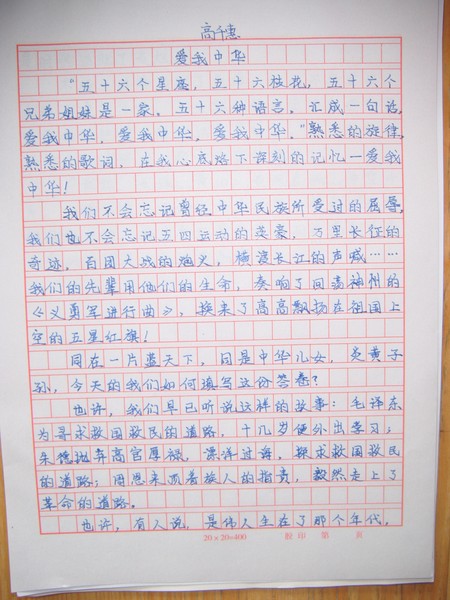 高千惠
爱我中华
“五十六个星座，五十六枝花，五十六个
兄弟姐妹是一家。五十六种语言，汇成一句话，
爱我中华，爱我中华，爱我中华。”熟悉的旋律，
熟悉的歌词，在我心底烙下深刻的记忆—爱我
中华！
我们不会忘记曾经中华民族所受过的屈辱，
我们也不会忘记五四运动的英豪，万里长征的
奇迹，百团大战的炮火，横渡长江的声喊……
我们的先辈用他们的生命，奏响了回荡神州的
《义勇军进行曲》，换来了高高飘扬在祖国上
空的五星红旗！
同在一片蓝天下，同是中华儿女，炎黄子
孙，今天的我们如何填写这份答卷？
也许，我们早已听说这样的故事：毛泽东
为寻求救国救民的道路，十几岁便外出学习；
朱德抛弃高官厚禄，漂洋过海，探求救国救民
的道路；周恩来顶着族人的指责，毅然走上了
革命的道路。
也许，有人说，是伟人生在了那个年代，
20×20=400 胶印 第 页